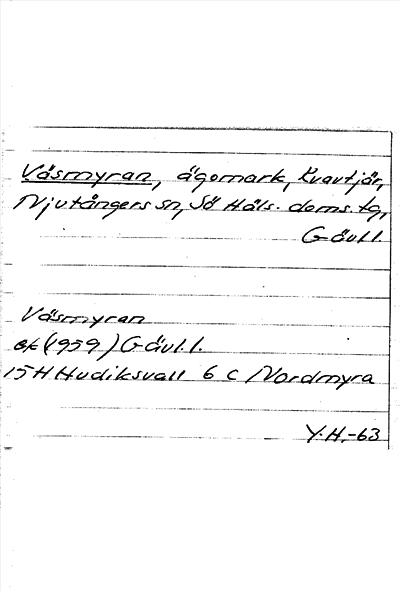 Väsmyran, ägomark, Kvavtjär,
Njutångers sn, Sö Häls. doms. tg,
Gävl.l.
Väsmyran
ek (1959) Gävl.l.
15H Hudiksvall 6 c Nordmyra
Y.H.-63